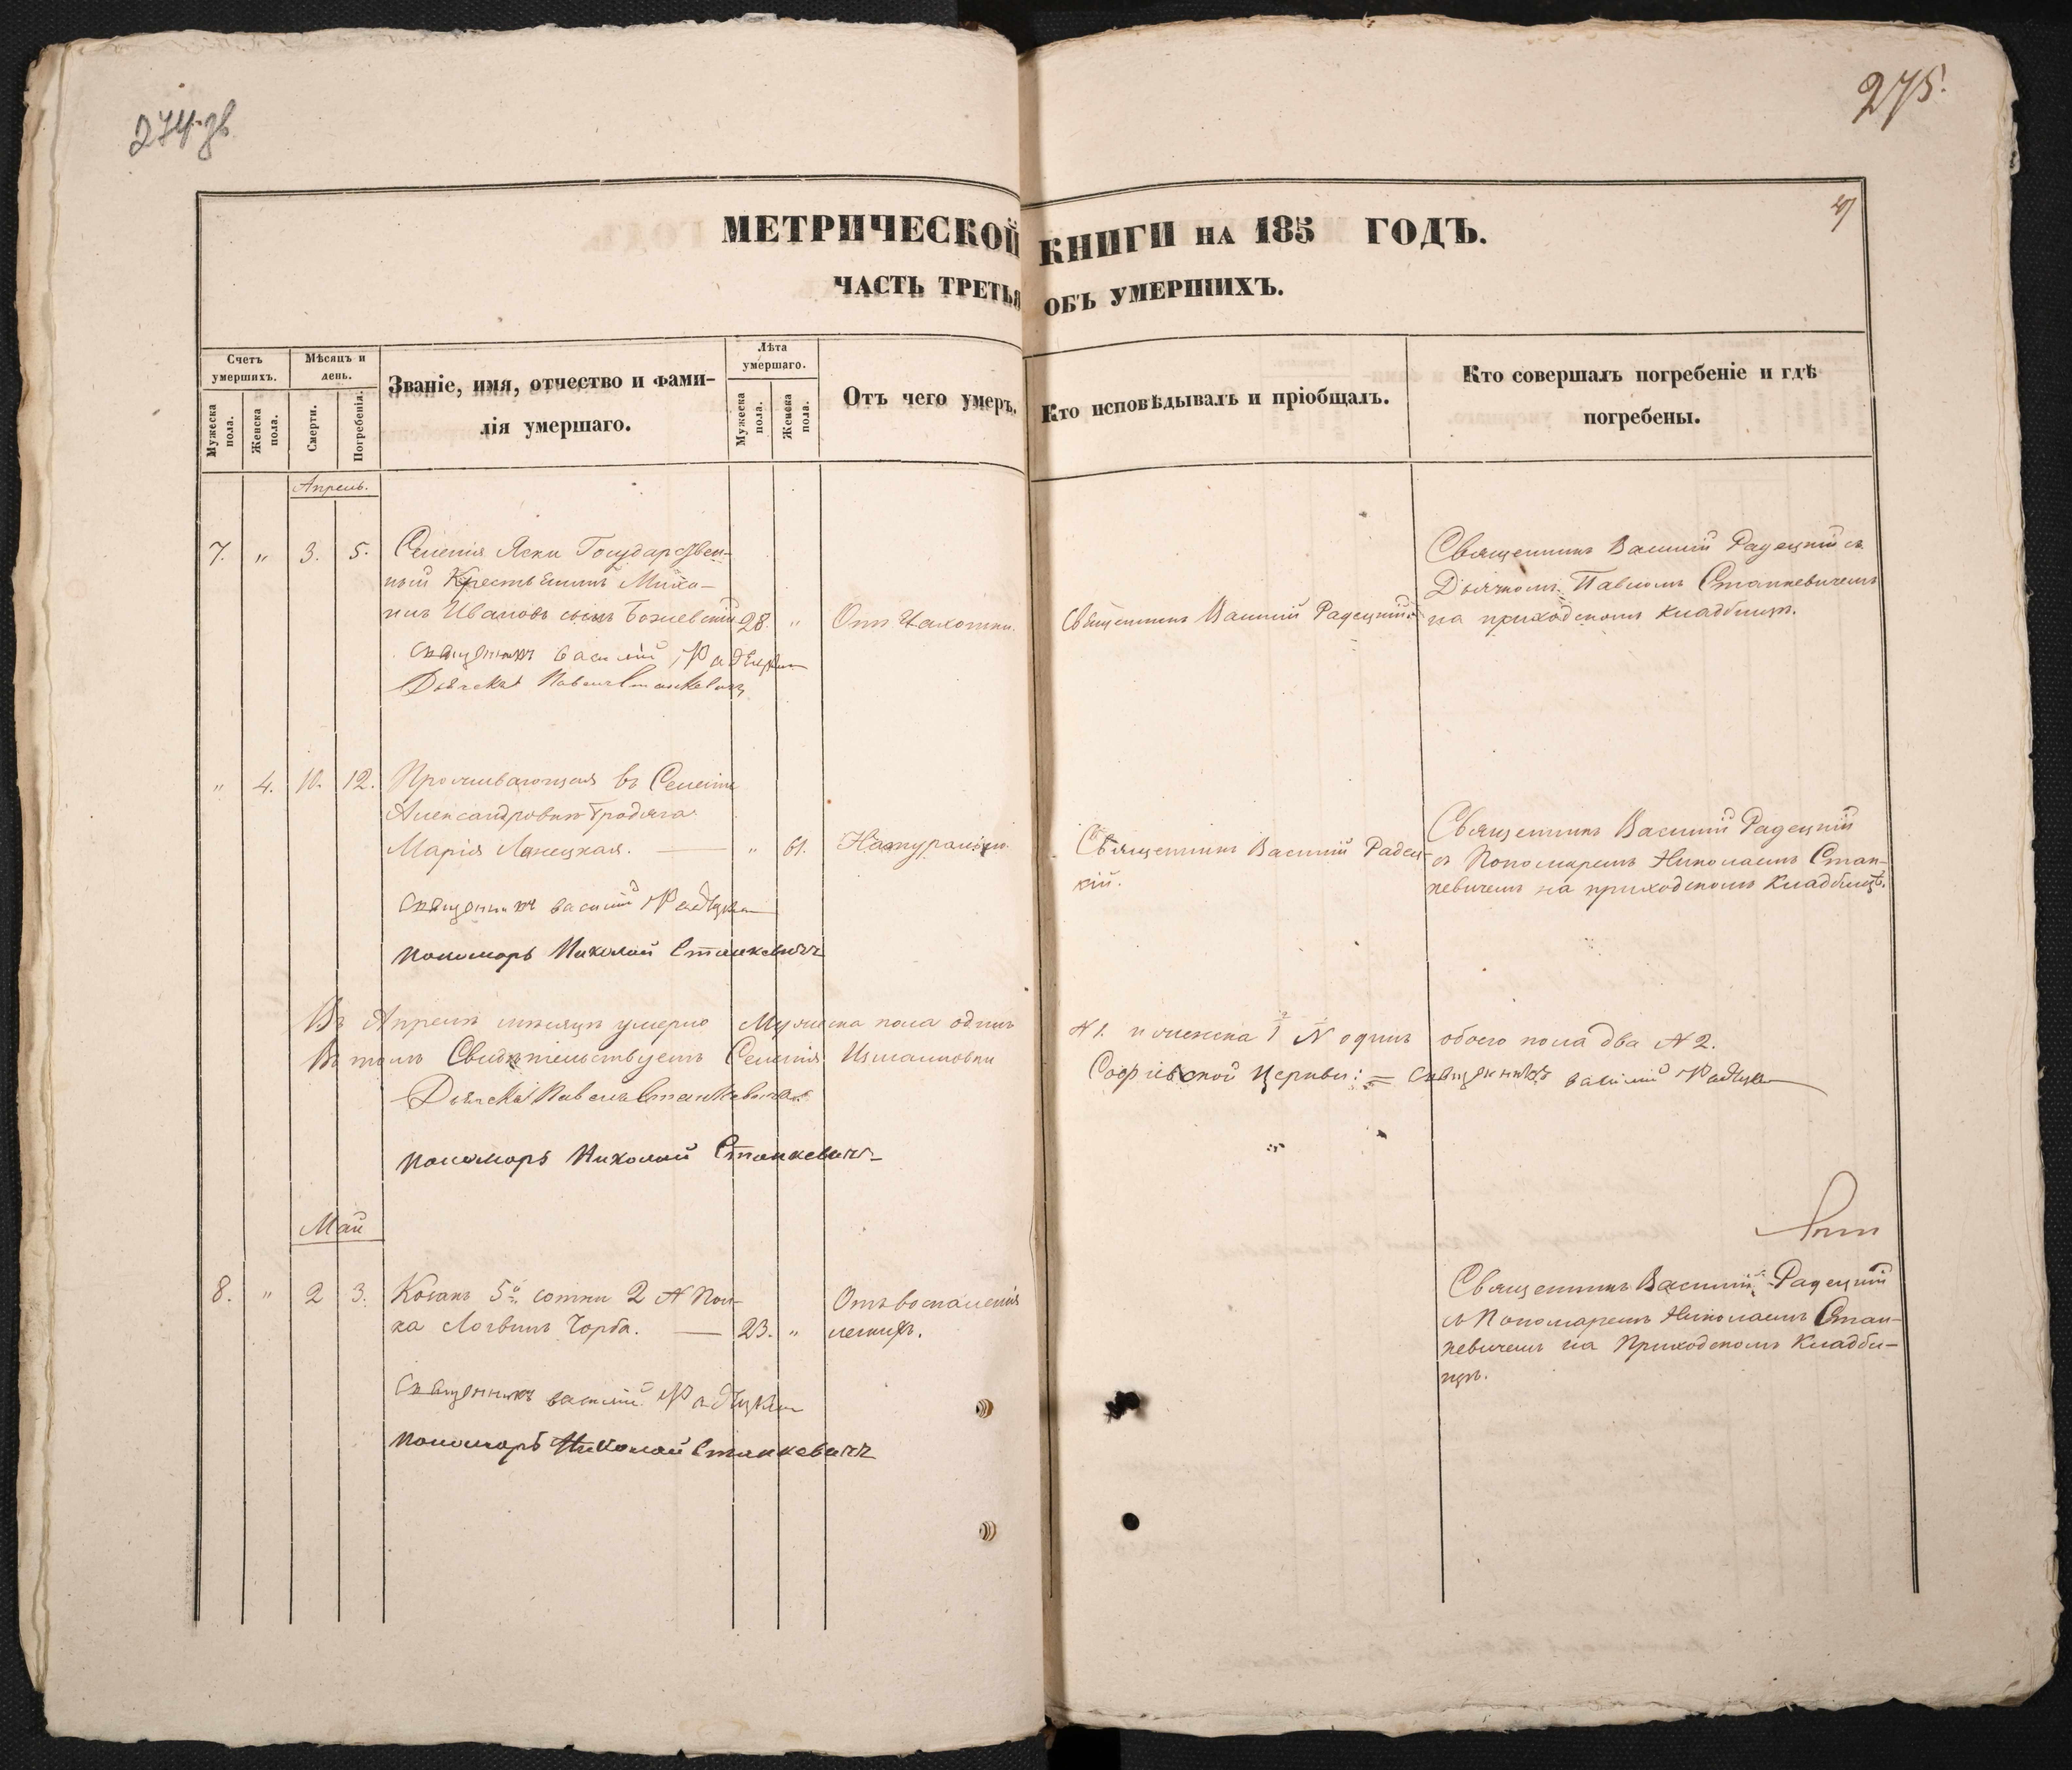 274 зв
275.
МЕТРИЧЕСКОЙ КНИГИ НА 185 ГОДЪ.
ЧАСТЬ ТРЕТЬЯ ОБЪ УМЕРШИХЪ.
Счетъ умершихъ.
Мѣсяцъ и день.
Званіе, имя, отчество и фами-
лія умершаго.
Лѣта умершаго.
Отъ чего умеръ.
Кто исповѣдывалъ и пріобщалъ.
Кто совершалъ погребеніе и гдѣ
погребены.
Мужеска пола.
Женска пола.
Смерти.
Погребенія.
Мужеска пола.
Женска пола.
Апрель.
7. „ 3. 5.
Селенія Яски Государствен-
ный Крестьянинъ Миха-
илъ Ивановъ сынъ
28. „
Отъ Чахотки.
Священникъ Василій Радецкій
Священникъ Василій Радецкій съ
Дьячкомъ Павломъ Станкевичемъ
на приходскомъ кладбищѣ.
Священникъ Василій Радецкій
Дьячекъ Павелъ Станкевичъ
„ 4. 10. 12.
Проживающая въ Селеніи
Александровкѣ
Марія
„ 61.
Натуральн.
Священникъ Василій Радец-
кій.
Священникъ Василій Радецкій
съ Пономаремъ Николаемъ Стан-
кевичемъ на приходскомъ Кладбищѣ.
Священникъ Василій Радецкій
Пономарь Николай Станкевичъ
Въ Апрелѣ мѣсяцѣ умерло Мужеска пола одинъ № 1. и женска 1 № одинъ обоего пола два № 2.
Въ томъ Свидѣтельствуемъ Селенія Измаиловки Софіевской Церкви: = Священникъ Василій Радецкій
Дьячекъ Павелъ Станкевичъ
Пономарь Николай Станкевичъ
Май
8. „ 2 3.
Козакъ 5й сотни 2 № Пол-
ка Логвинъ Чорба.
23. „
Отъ воспаленія
легкихъ.
Священникъ Василій Радецкій
съ Пономаремъ Николаемъ Стан-
кевичемъ на Приходскомъ Кладби-
щѣ.
Священникъ Василій Радецкій
Пономарь Николай Станкевичъ